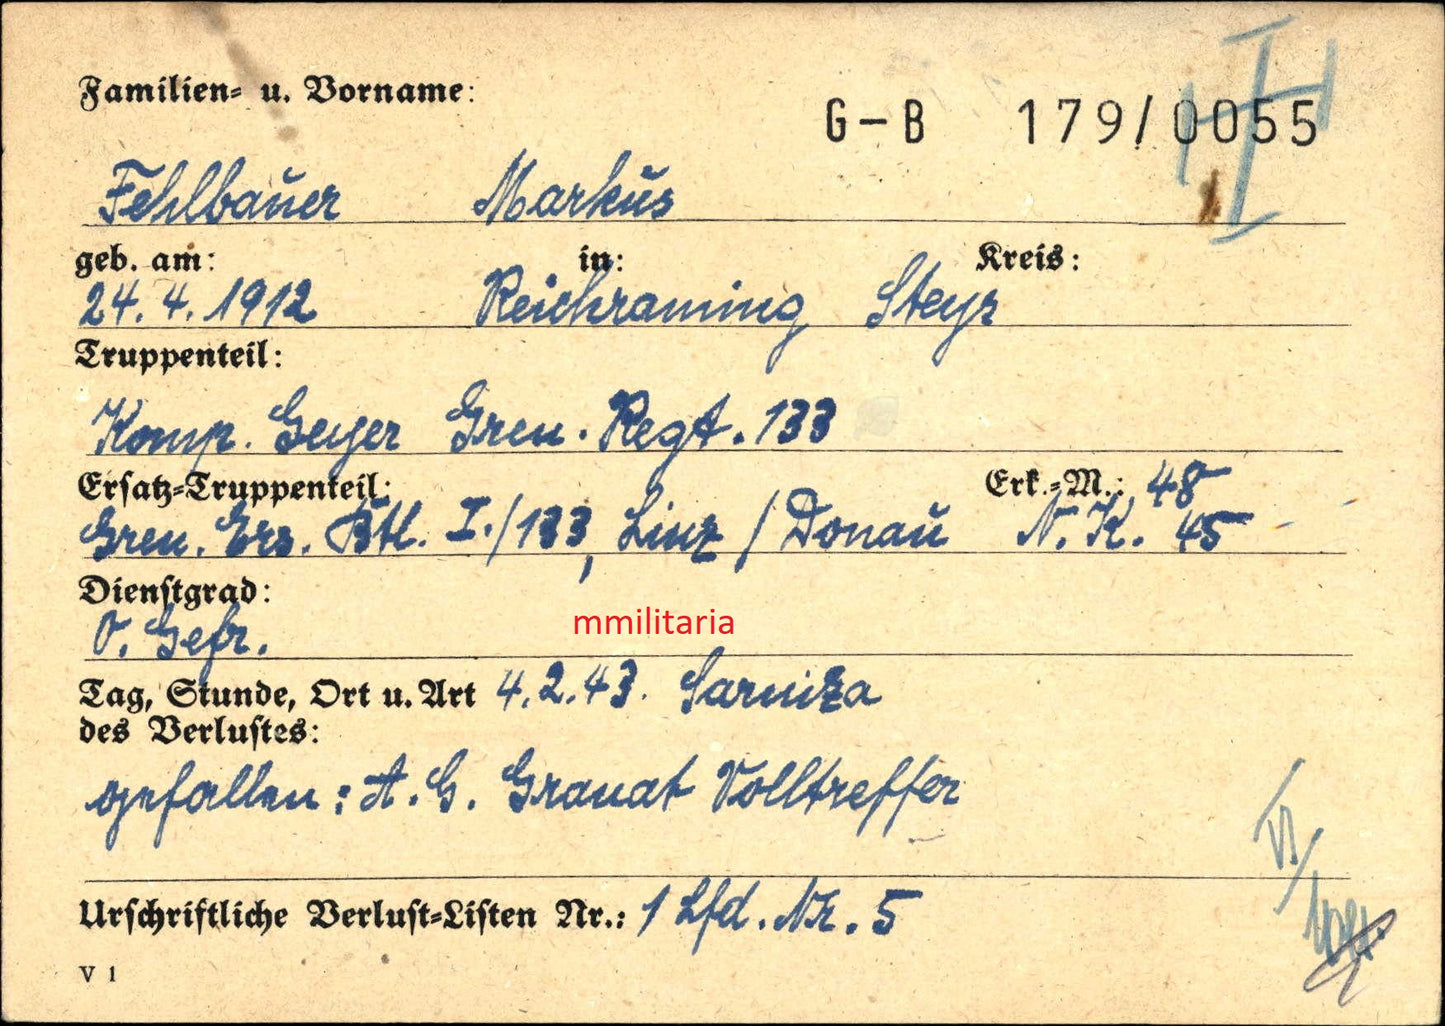 Familien- u. Vorname:
G-B 179/0055
Fehlbauer Markus
geb. am: in: Kreis:
24.4.1912 Reichraming Steyr
Truppenteil:
Komp. Geyer Gren. Regt. 133
Ersatz-Truppenteil: Erk.-M.: 48
Gren. Ers. Btl. I./133, Linz / Donau N. K. 45
Dienstgrad:
O. Gefr.
mmilitaria
Tag, Stunde, Ort u. Art 4.2.43. Sarniza
des Verlustes:
gefallen: A. G. Granat Volltreffer
Urschriftliche Verlust-Listen Nr.: 1 Lfd. Nr. 5
V 1